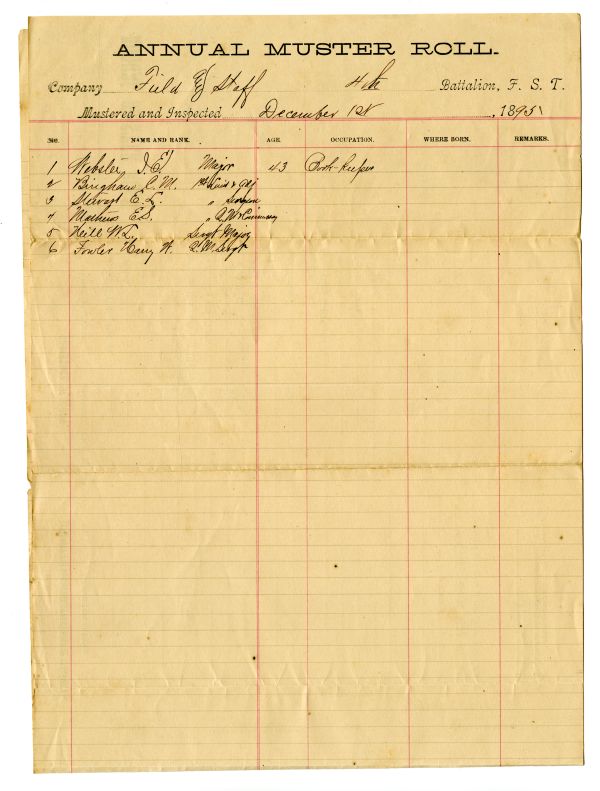 ANNUAL MUSTER ROLL.
Company Field & Staff 4th Battalion, F. S. T.
Mustered and Inspected December 1st, 1895
No. NAME AND RANK. AGE. OCCUPATION. WHERE BORN. REMARKS.
1 Webster, J. E. Major 43 Book-keeper
2 Bingham C. M. 1st Lieut & Adj
3 Stewart E. L. " Surgeon
4 Mathews E. S. " Q. M. & Commissary
5 Neill W. L. Sergt Major
6 Fowler Harry W. Q. M. Sergt